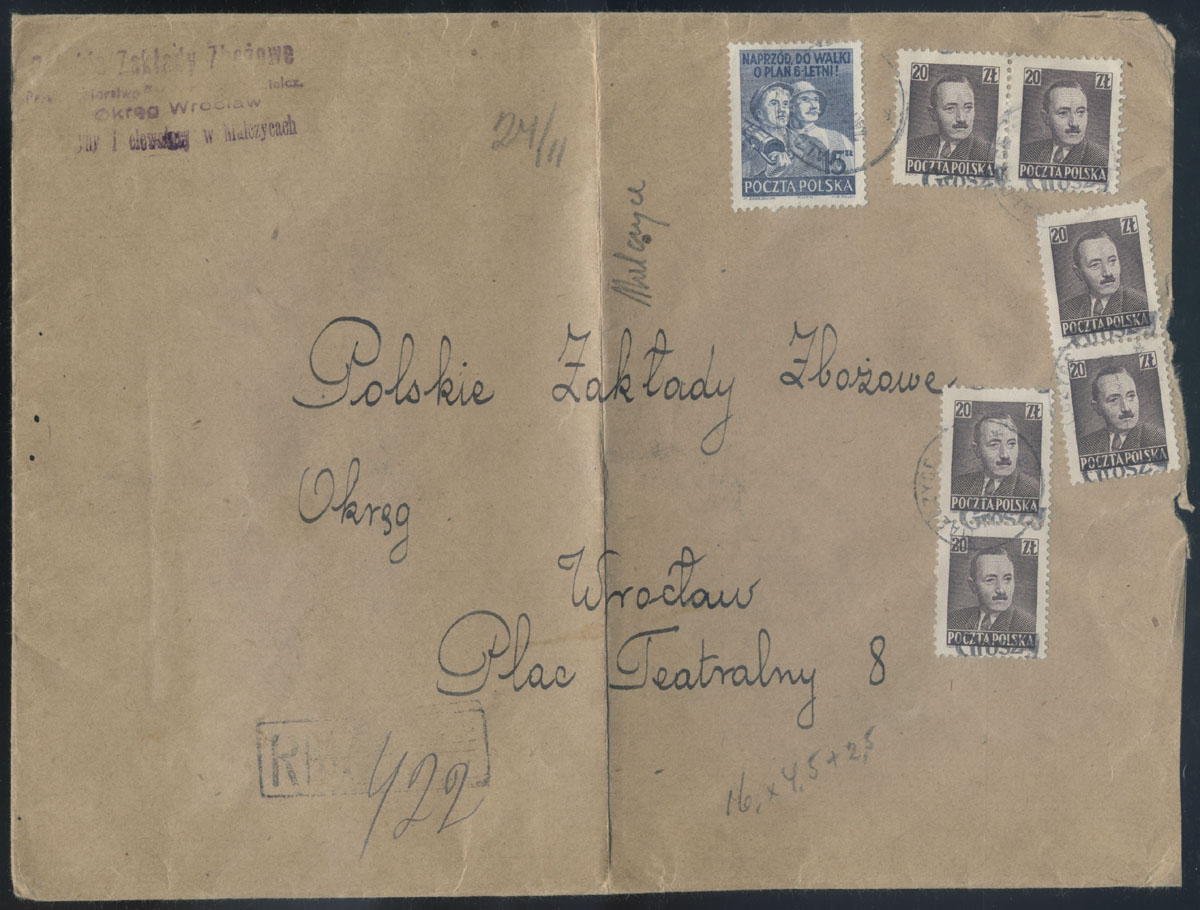 Zakłady Zbożowe
Okręg Wrocław
i elewatory w Malczycach
24/11
NAPRZÓD, DO WALKI
O PLAN 6-LETNI!
15 zł
POCZTA POLSKA
20 ZŁ
POCZTA POLSKA
Groszy
20 ZŁ
POCZTA POLSKA
Groszy
20 ZŁ
POCZTA POLSKA
Groszy
20 ZŁ
POCZTA POLSKA
Groszy
20 ZŁ
POCZTA POLSKA
Groszy
20 ZŁ
POCZTA POLSKA
Groszy
Malczyce
Polskie Zakłady Zbożowe
Okręg
Wrocław
Plac Teatralny 8
R
422
16, x 4,5 + 2,5